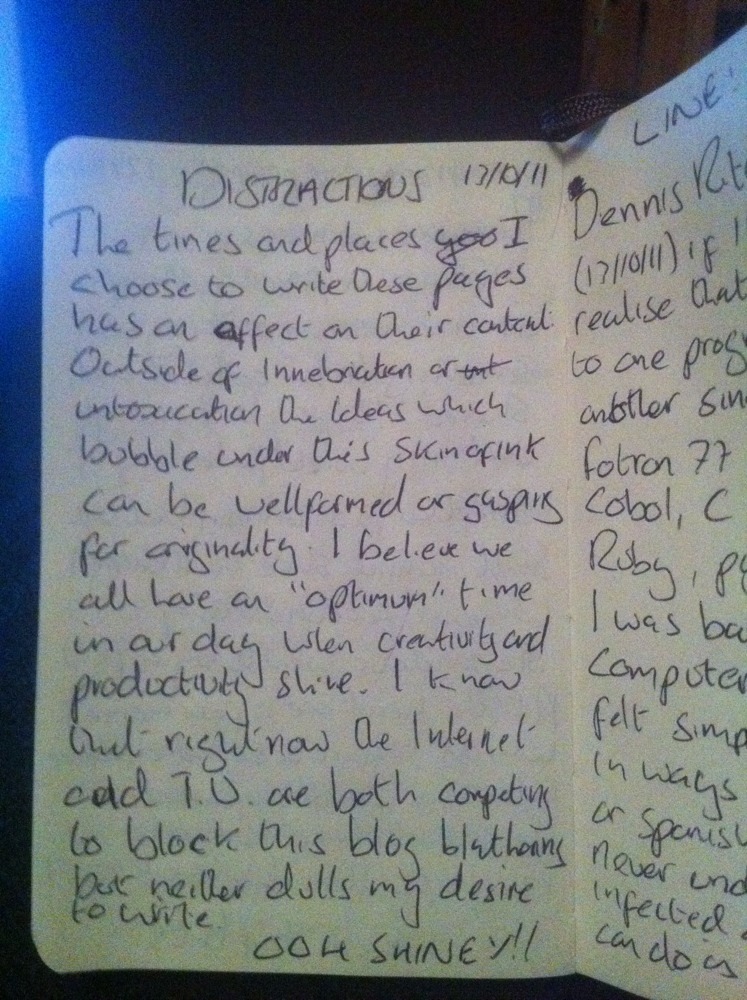 DISTRACTIONS 17/10/11
The times and places you I
choose to write these pages
has an affect on their content.
Outside of Innebriation or int
intoxication the Ideas which
bubble under this skin of ink
can be wellformed or gasping
for originality. I believe we
all have an "optimum" time
in our day when creativity and
productivity shine. I know
that right now the Internet
and T.V. are both competing
to block this blog blathering
but neither dulls my desire
to write.
OOH SHINEY!!
LINE!
Dennis Rit
(17/10/11) if I
realise that
to one prog
another sin
fotran 77
Cobol, C
Ruby, py
I was ba
Computer
felt simp
in ways
or Spanish
never und
infected
can do is